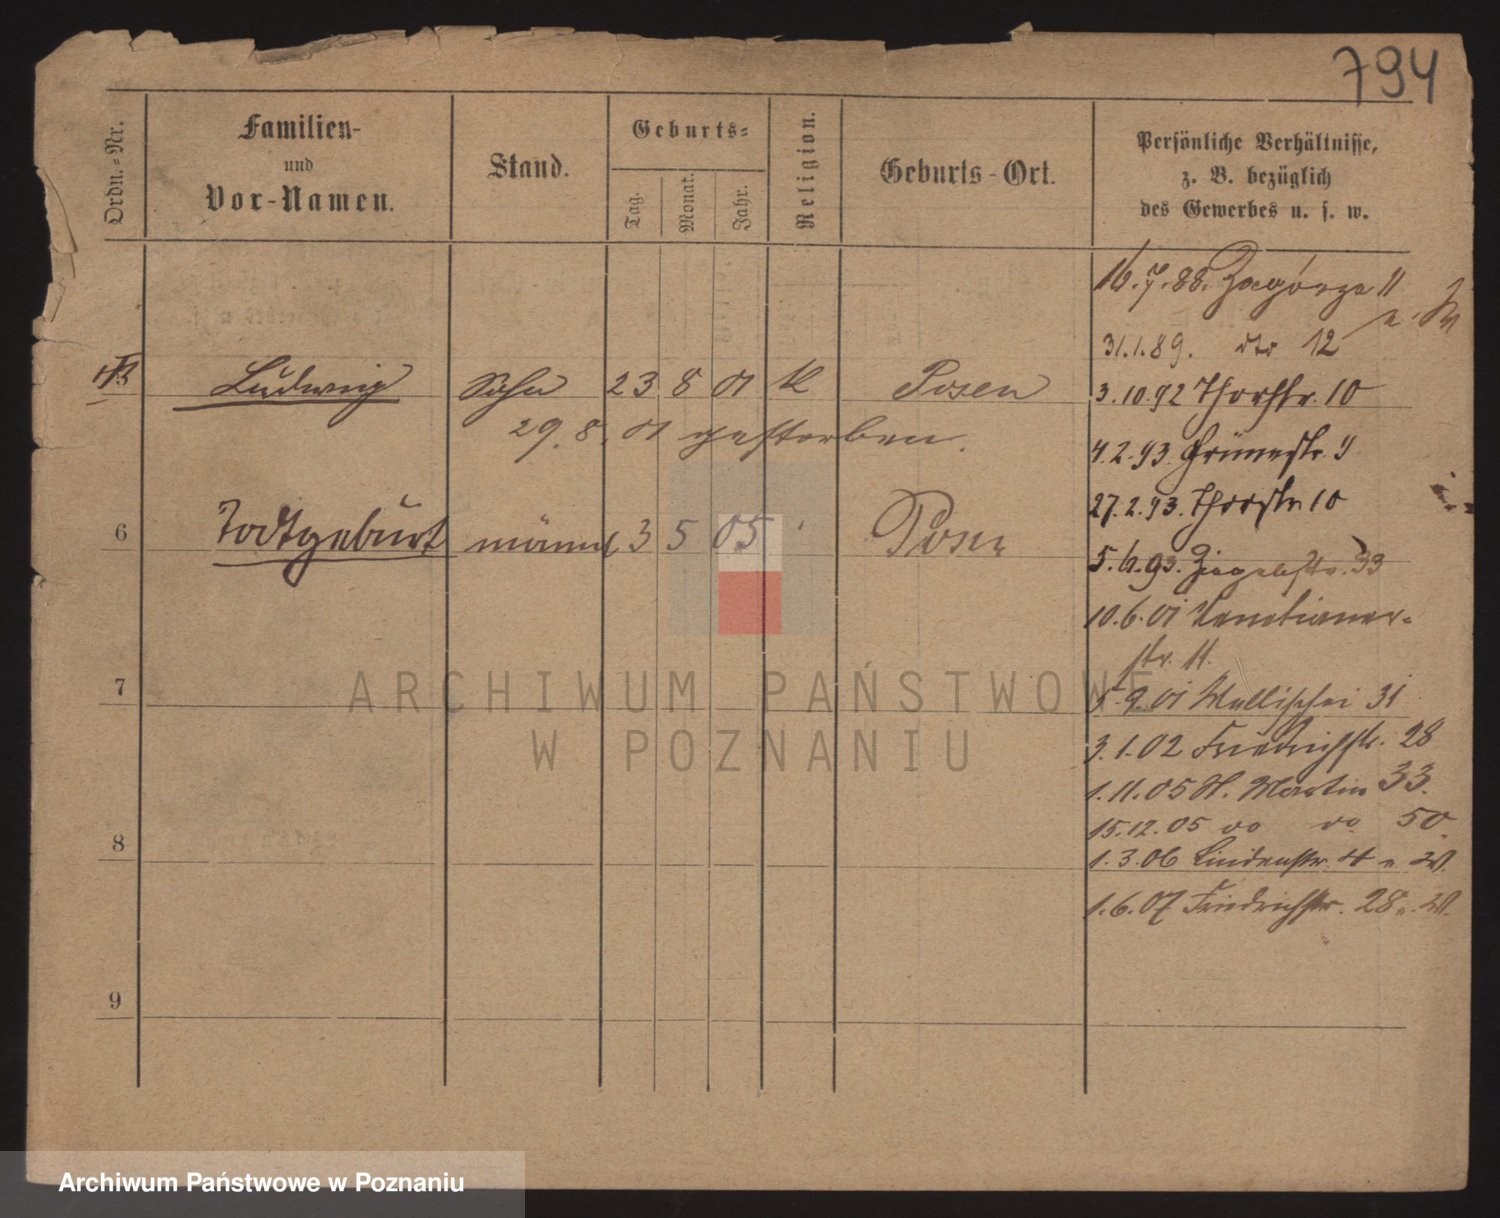 794
Ordn.-Nr.
Familien-
und
Vor-Namen.
Stand.
Geburts-
Tag.
Monat.
Jahr.
Religion.
Geburts-Ort.
Persönliche Verhältnisse,
z. B. bezüglich
des Gewerbes u. s. w.
16.7.88. Zagórze 11
31.1.89. dto 12
Ludwig Sohn 23 8 01 K Posen
3.10.92 Thorstr. 10
29. 8. 01 gestorben.
4.2.93. Grünestr. 9
27.2.93. Thorstr 10
6 Todtgeburt männl 3 5 05 Posen
5.6.93. Ziegelstr. 33
10.6.01 Venetianer-
str. 11.
7
5.9.01 Wallischei 31
3.1.02 Friedrichstr. 28
1.11.05 St. Martin 33.
15.12.05 do do 50.
8
1.3.06 Lindenstr. 4 n. W.
1.6.07 Friedrichstr. 28 n. W.
9
ARCHIWUM PAŃSTWOWE
W POZNANIU
Archiwum Państwowe w Poznaniu